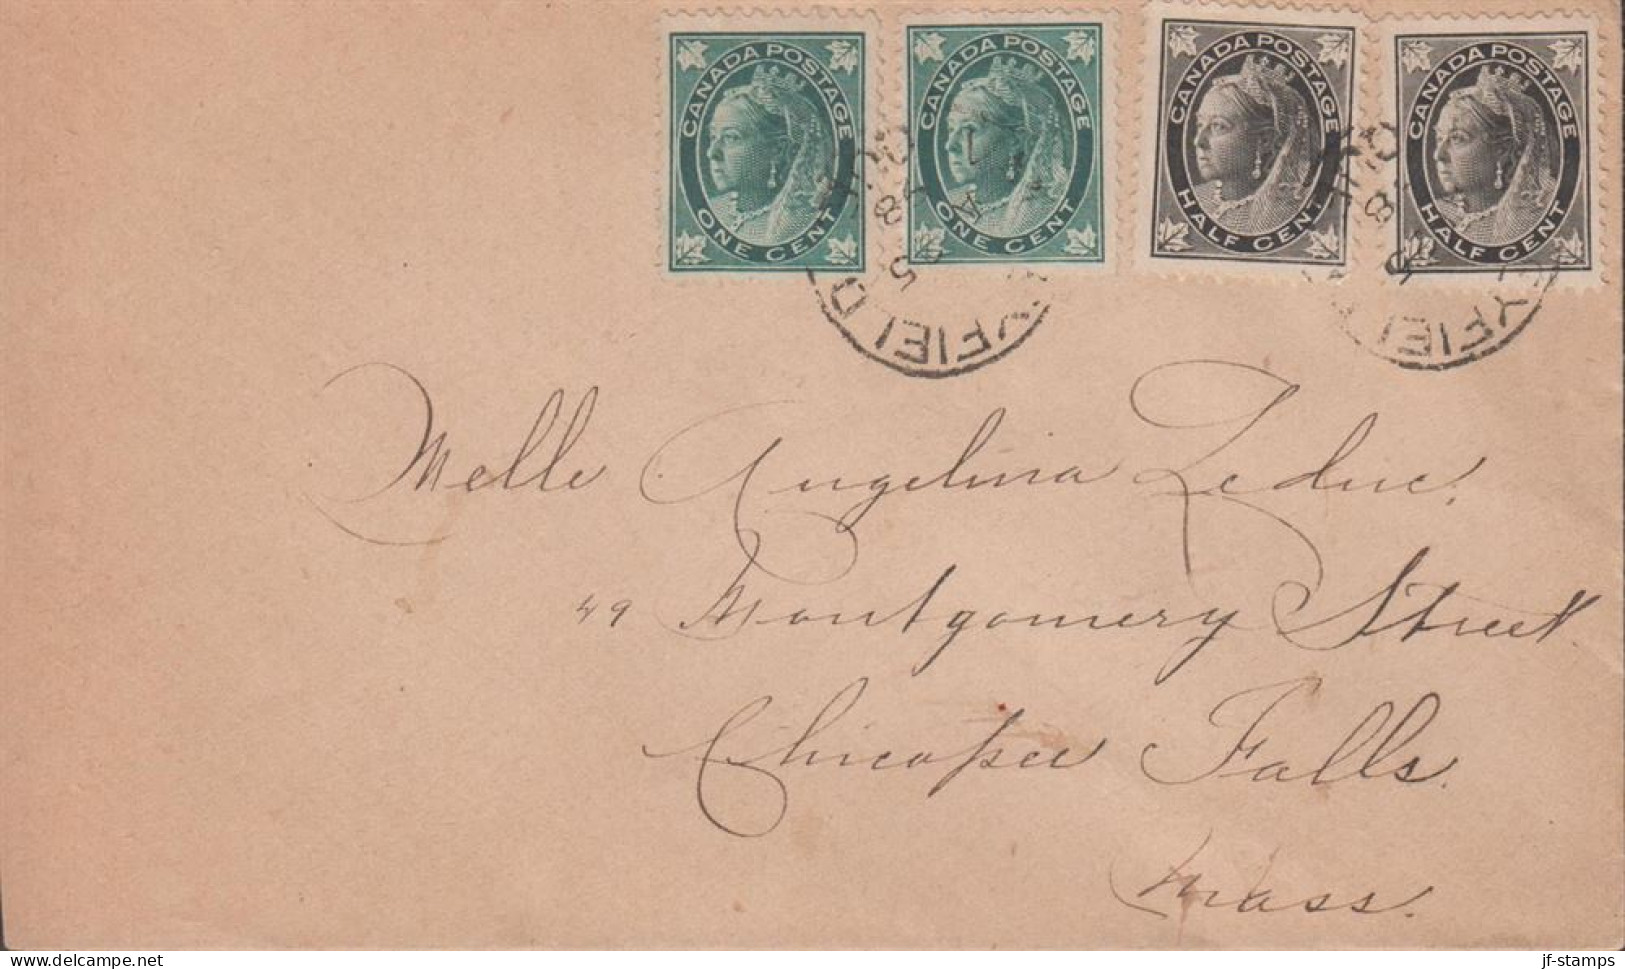 CANADA POSTAGE
ONE CENT
CANADA POSTAGE
ONE CENT
CANADA POSTAGE
HALF CENT
CANADA POSTAGE
HALF CENT
Melle Angelina Leduc,
49 Montgomery Street
Chicopee Falls.
Mass.
jf-stamps